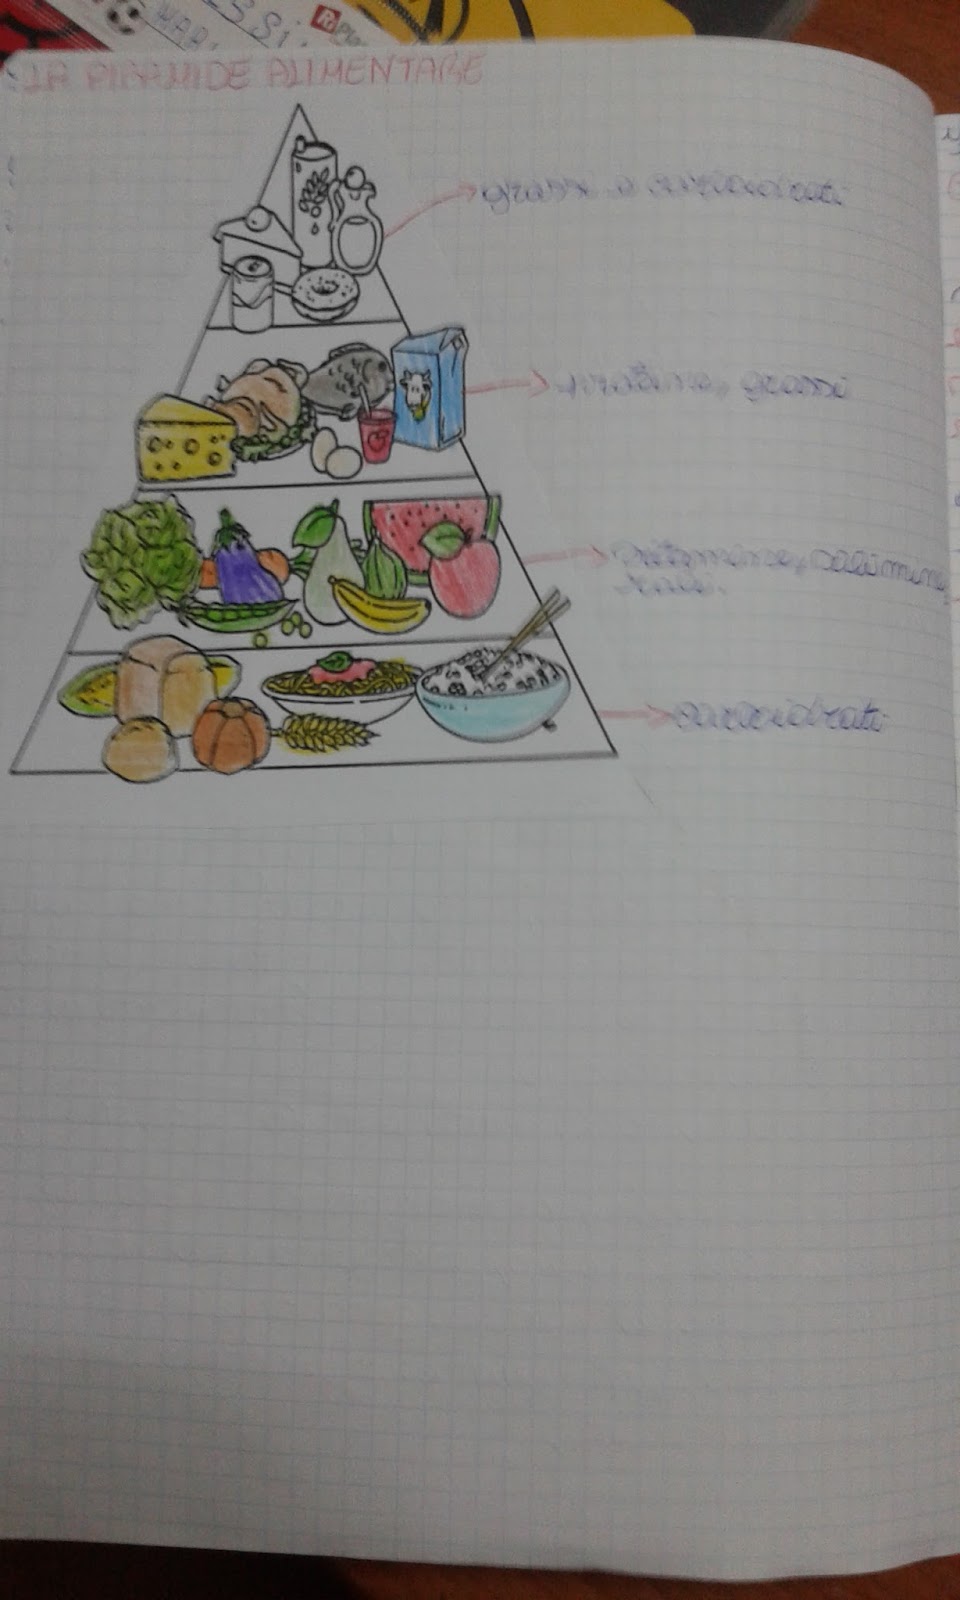 LA PIRAMIDE ALIMENTARE
grassi e carboidrati
proteine, grassi
vitamine, sali mine
rali.
carboidrati